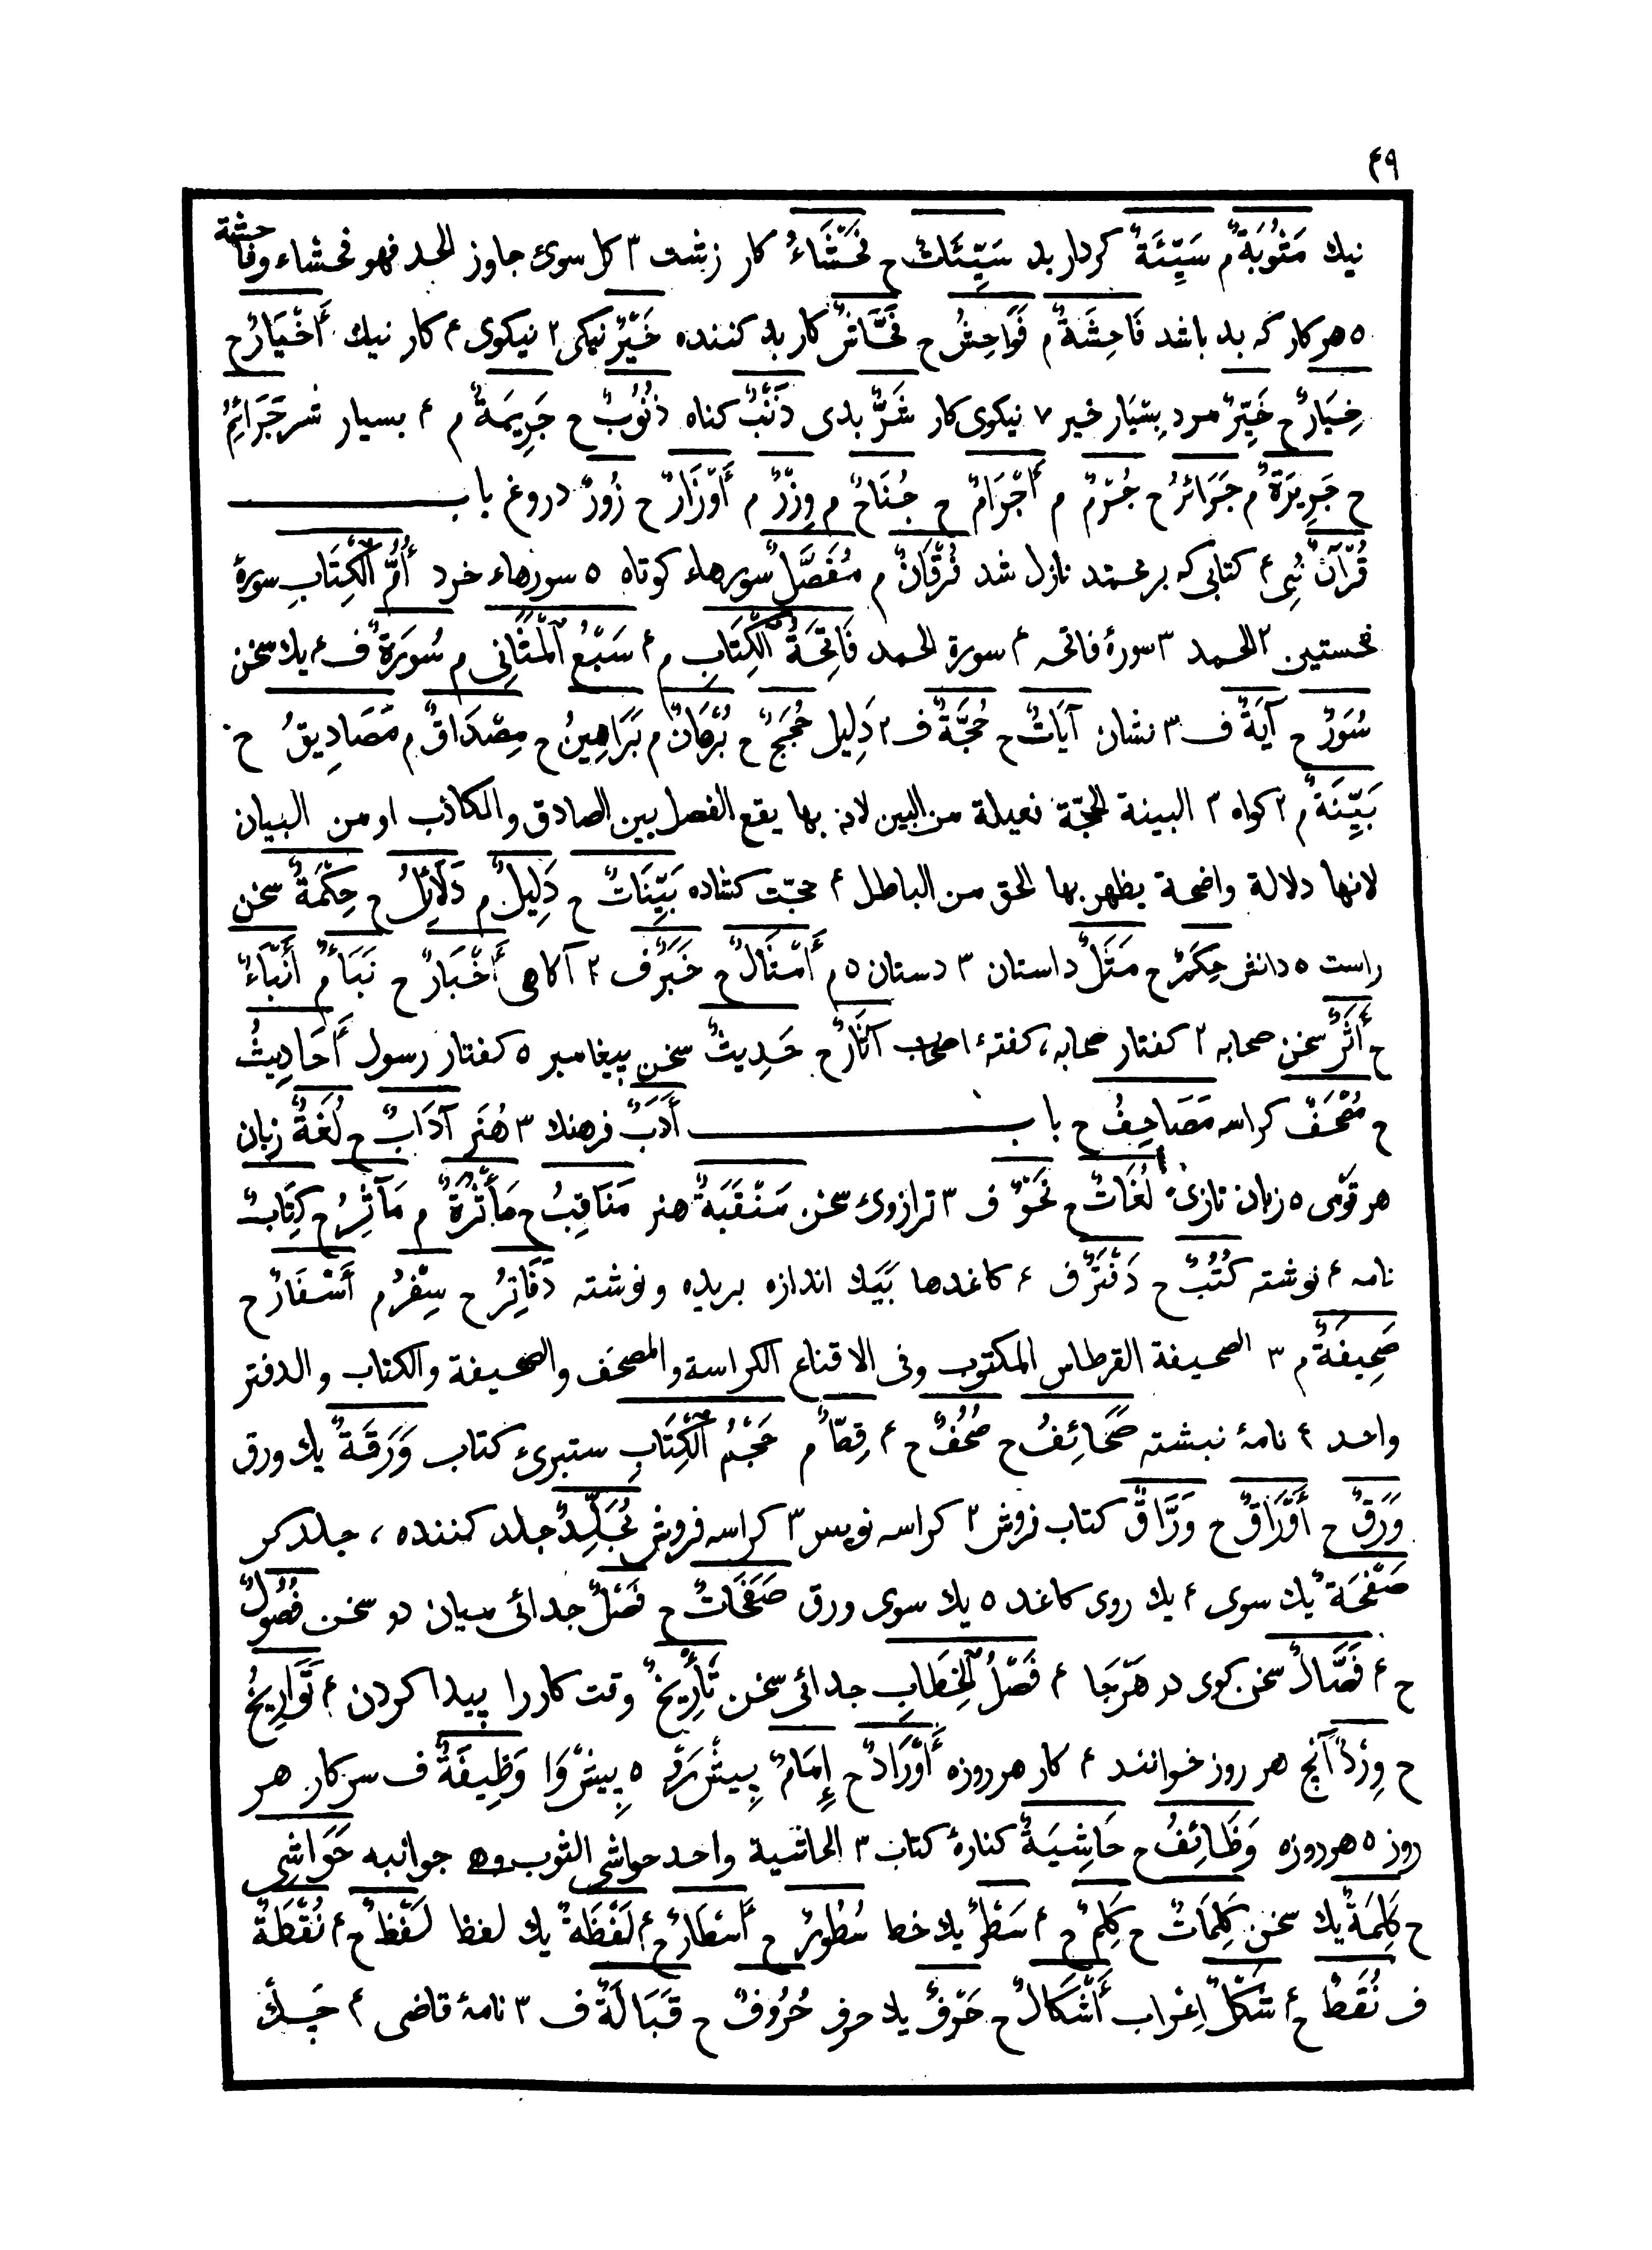 ۴۹
نیك مَثُوبَةٌ م سَيِّئَةٌ کردار بد سَيِّئَاتٌ ح فَحْشَاءُ کار زشت ۳ کل سوئ جاوز الحد فهو فحشاء وفاحشة
۵ هر کار که بد باشد فَاحِشَةٌ م فَوَاحِشُ ح فَحَّاشٌ کار بد کننده خَيْرٌ نیکی ۲ نیکوی ۴ کار نیك أَخْيَارٌ ح
خِيَارٌ ح خَيِّرٌ مرد بِسْیَار خیر ۷ نیکوی کار شَرٌّ بدی ذَنْبٌ کناه ذُنُوبٌ ح جَرِيمَةٌ م ۴ بسیار شر جَرَائِمُ
ح جَرِيرَةٌ م جَرَائِرُ ح جُرْمٌ م أَجْرَامٌ ح جُنَاحٌ م وِزْرٌ م أَوْزَارٌ ح زُورٌ دروغ باب
قُرْآنٌ نُبی ۴ کتابی که بر محمد نازل شد فُرْقَانٌ م مُفَصَّلٌ سورهاء کوتاه ۵ سورهاء خرد أُمُّ الْكِتَابِ سورۀ
نخستین ۲ الحمد ۳ سورۀ فاتحه ۴ سورة الحمد فَاتِحَةُ الْكِتَابِ م ۴ سَبْعُ الْمَثَانِي م سُورَةٌ ف ۴ یك سخن
سُوَرٌ ح آيَةٌ ف ۳ نشان آيَاتٌ ح حُجَّةٌ ف ۲ دَلِيل حُجَجٌ ح بُرْهَانٌ م بَرَاهِينُ ح مِصْدَاقٌ م مَصَادِيقُ ح
بَيِّنَةٌ م ۲ کواه ۳ البينة الحجّة فعيلة من البين لانه بها يقع الفصل بين الصادق والكاذب او من البيان
لانها دلالة واضحة يظهر بها الحق من الباطل ۴ حجّت کشاده بَيِّنَاتٌ ح دَلِيلٌ م دَلَائِلُ ح حِكْمَةٌ سخن
راست ۵ دانش حِكَمٌ ح مَثَلٌ داستان ۳ دستان ۵ م أَمْثَالٌ ح خَبَرٌ ف ۲ آکاهی أَخْبَارٌ ح نَبَأٌ م أَنْبَاءٌ
ح أَثَرٌ سخن صحابه ۲ کفتار صحابه، کفتۀ اصحاب آثَارٌ ح حَدِيثٌ سخن پیغامبر ۵ کفتار رسول أَحَادِيثُ
ح مُصْحَفٌ کراسه مَصَاحِفُ ح باب أَدَبٌ فرهنك ۳ هُنَر آدَابٌ ح لُغَةٌ زبان
هر قَوْمی ۵ زبان تازی لُغَاتٌ ح نَحْوٌ ف ۳ ترازوئ سخن مَنْقَبَةٌ هنر مَنَاقِبُ ح مَأْثَرَةٌ م مَآثِرُ ح كِتَابٌ
نامه ۴ نوشته كُتُبٌ ح دَفْتَرٌ ف ۴ کاغدها بَیَك اندازه بریده و نوشته دَفَاتِرُ ح سِفْرٌ م أَسْفَارٌ ح
صَحِيفَةٌ م ۳ الصحيفة القرطاس المكتوب وفى الاقناع الكراسة والمصحف والصحيفة والكتاب والدفتر
واحد ۴ نامۀ نبشته صَحَائِفُ ح صُحُفٌ ح ۴ قِطٌّ م حَجْمُ الْكِتَابِ ستبرئ کتاب وَرَقَةٌ یك ورق
وَرَقٌ ح أَوْرَاقٌ ح وَرَّاقٌ کتاب فروش ۲ کراسه نویس ۳ کراسه فروش مُجَلِّدٌ جلد کننده، جلد کر
صَفْحَةٌ یك سوی ۴ یك روی کاغد ۵ یك سوی ورق صَفَحَاتٌ ح فَصْلٌ جدائی میان دو سخن فُصُولٌ
ح ۴ فَصَّالٌ سخن کوی در هَرْجَا ۴ فَصْلُ الْخِطَابِ جدائی سخن تَأْرِيخٌ وقت کار را پیدا کردن ۴ تَوَارِيخُ
ح وِرْدٌ آنچ هر روز خوانند ۴ کار هر روزه أَوْرَادٌ ح إِمَامٌ پِیشْ رَو ۵ پِیشْوَا وَظِيفَةٌ ف سر کار هر
روز ۵ هر روزه وَظَائِفُ ح حَاشِيَةٌ کنارۀ کتاب ۳ الحاشية واحد حواشى الثوب وهى جوانبه حَوَاشِي
ح كَلِمَةٌ یك سخن كَلِمَاتٌ ح كَلِمٌ ح ۴ سَطْرٌ یك خط سُطُورٌ ح أَسْطَارٌ ح ۴ لَفْظَةٌ یك لفظ لَفْظٌ ح ۴ نُقْطَةٌ
ف نُقَطٌ ح ۴ شَكْلٌ اِعْراب أَشْكَالٌ ح حَرْفٌ یك حرف حُرُوفٌ ح قَبَالَةٌ ف ۳ نامۀ قاضی ۴ چَك